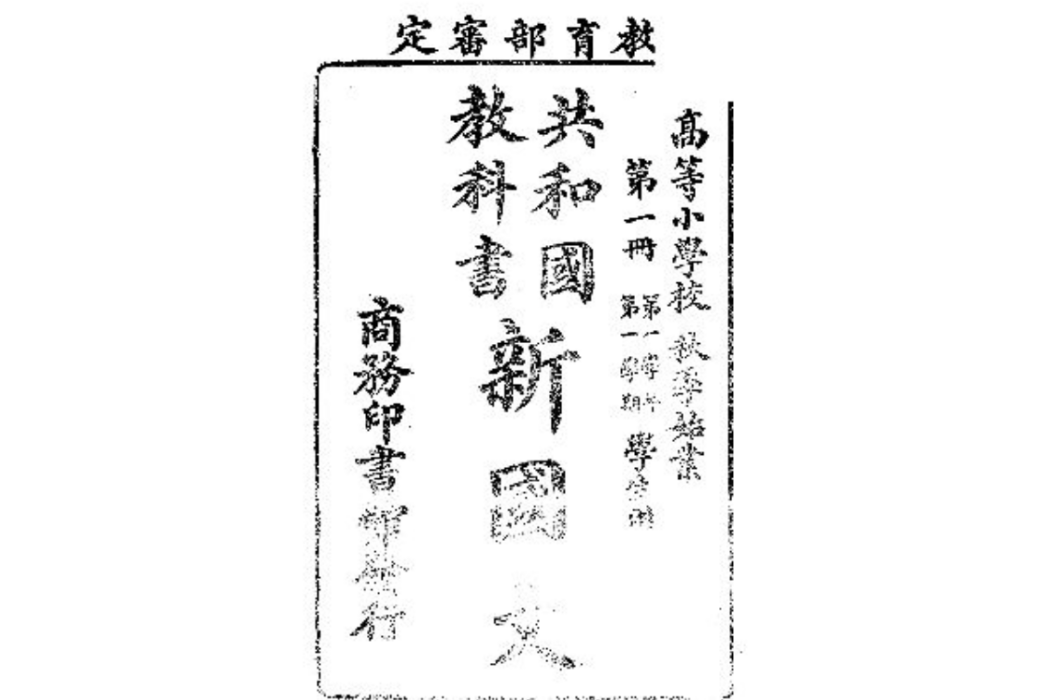 教育部審定
高等小學校 秋季始業
第一冊 第一學年 第一學期 學生用
共和國
教科書
新國文
商務印書館發行